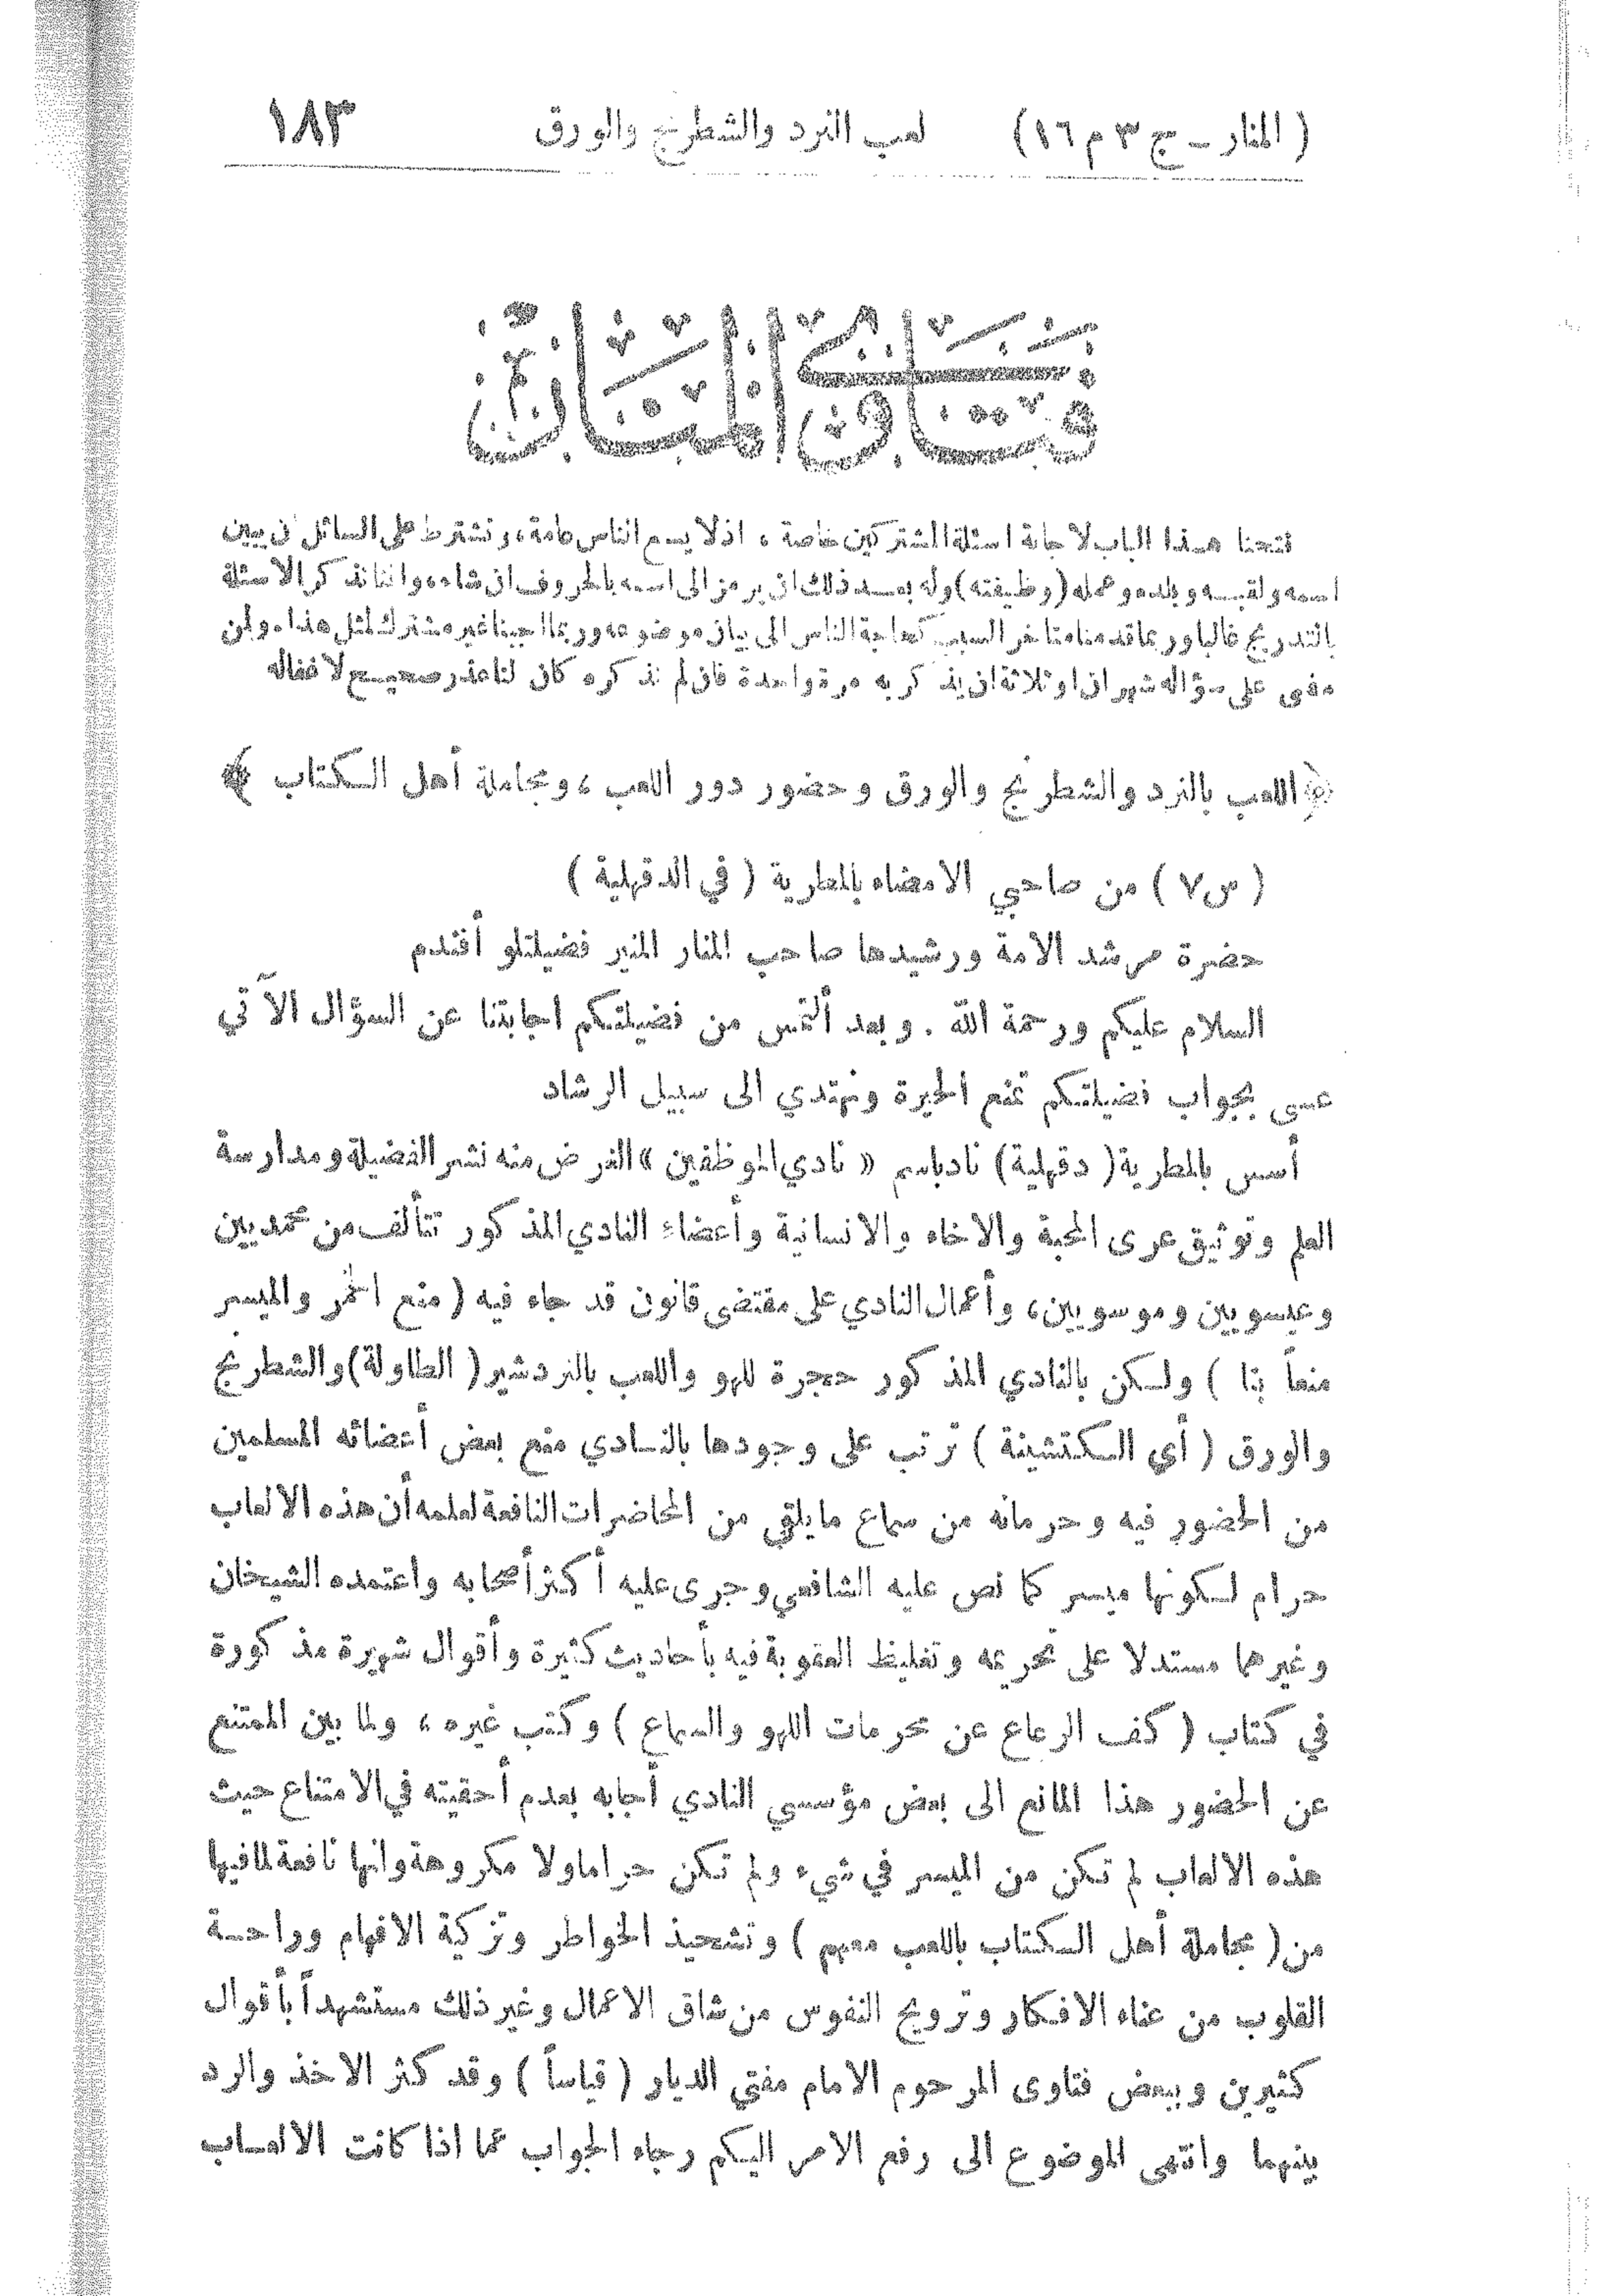 ( المنار – ج ٣ م ١٦ ) لعب النرد والشطرنج والورق ١٨٣
فتاوى المنار
فتحنا هذا الباب لاجابة اسئلة المشتركين خاصة ، اذ لا يسع الناس عامة ، ونشترط على السائل ان يبين
اسمه ولقبه وبلده وعمله (وظيفته) وله بعد ذلك ان يرمز الى اسمه بالحروف ان شاء ، واننا نذكر الاسئلة
بالتدريج غالبا وربما قدمنا متأخرا لسبب كحاجة الناس الى بيان موضوعه وربما اجبنا غير مشترك لمثل هذا . ولمن
مضى على سؤاله شهران او ثلاثة ان يذكر به مرة واحدة فان لم نذكره كان لنا عذر صحيح لاغفاله
﴿ اللعب بالنرد والشطرنج والورق وحضور دور اللعب ، ومجاملة أهل الكتاب ﴾
( س ٧ ) من صاحبي الامضاء بالمطرية ( في الدقهلية )
حضرة مرشد الامة ورشيدها صاحب المنار المنير فضيلتلو أفندم
السلام عليكم ورحمة الله . وبعد ألتمس من فضيلتكم اجابتنا عن السؤال الآتي
عسى بجواب فضيلتكم تمنع الحيرة ونهتدي الى سبيل الرشاد
أسس بالمطرية ( دقهلية ) ناد باسم « نادي الموظفين » الغرض منه نشر الفضيلة ومدارسة
العلم وتوثيق عرى المحبة والاخاء والانسانية وأعضاء النادي المذكور تتألف من محمديين
وعيسويين وموسويين ، وأعمال النادي على مقتضى قانون قد جاء فيه ( منع الخمر والميسر
منعاً بتا ) ولكن بالنادي المذكور حجرة للهو واللعب بالنردشير ( الطاولة ) والشطرنج
والورق ( أي الكتشينة ) ترتب على وجودها بالنادي منع بعض أعضائه المسلمين
من الحضور فيه وحرمانه من سماع ما يلقى من المحاضرات النافعة لعلمه أن هذه الالعاب
حرام لكونها ميسر كما نص عليه الشافعي وجرى عليه أكثر أصحابه واعتمده الشيخان
وغيرهما مستدلا على تحريمه وتغليظ العقوبة فيه بأحاديث كثيرة وأقوال شهيرة مذكورة
في كتاب ( كف الرعاع عن محرمات اللهو والسماع ) وكتب غيره ، ولما بين الممتنع
عن الحضور هذا المانع الى بعض مؤسسي النادي أجابه بعدم أحقيته في الامتناع حيث
هذه الالعاب لم تكن من الميسر في شيء ولم تكن حراما ولا مكروهة وانها نافعة لما فيها
من ( مجاملة أهل الكتاب باللعب معهم ) وتشحيذ الخواطر وتزكية الافهام وراحة
القلوب من عناء الافكار وترويح النفوس من شاق الاعمال وغير ذلك مستشهداً بأقوال
كثيرين وببعض فتاوى المرحوم الامام مفتي الديار ( قياساً ) وقد كثر الاخذ والرد
بينهما وانتهى الموضوع الى رفع الامر اليكم رجاء الجواب عما اذا كانت الالعاب